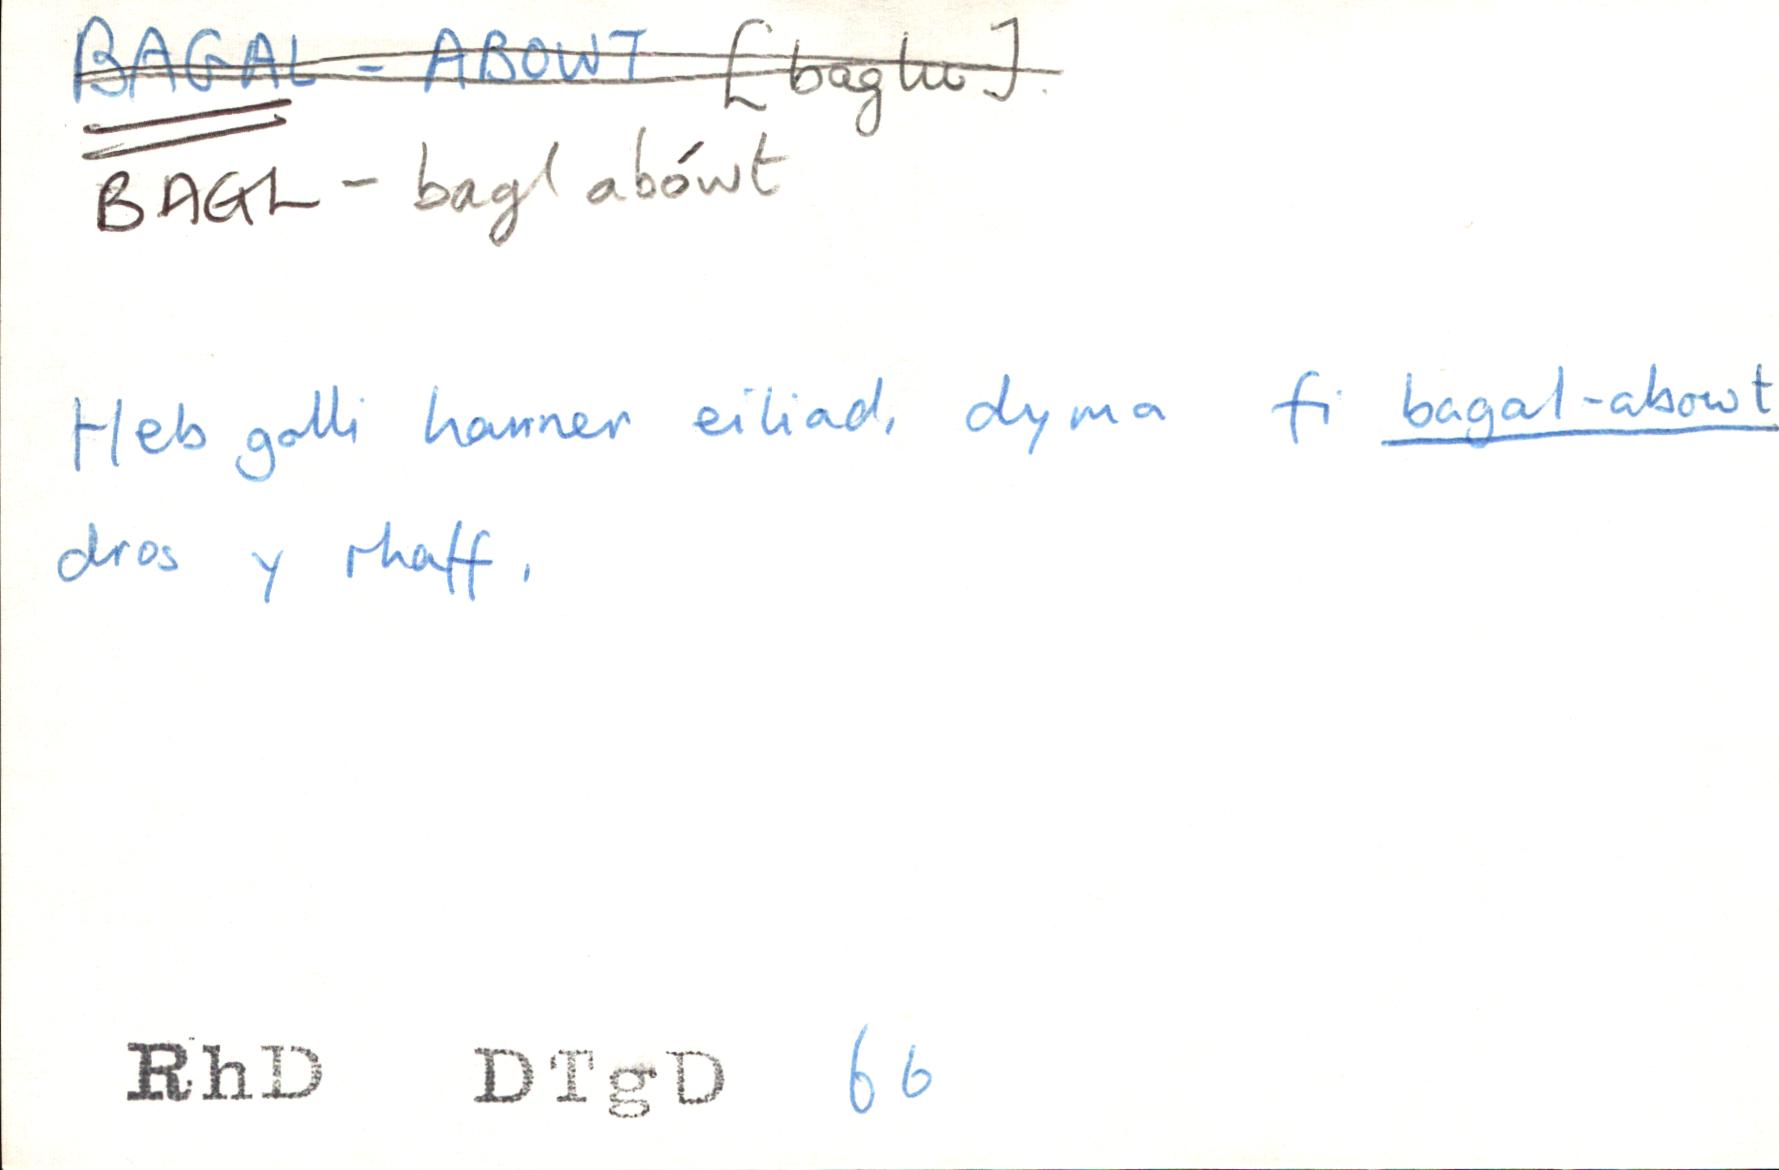 BAGAL - ABOWT [baglu].
BAGL - bagl abówt
Heb golli hanner eiliad, dyma fi bagal-abowt
dros y rhaff,
RhD DTgD 66